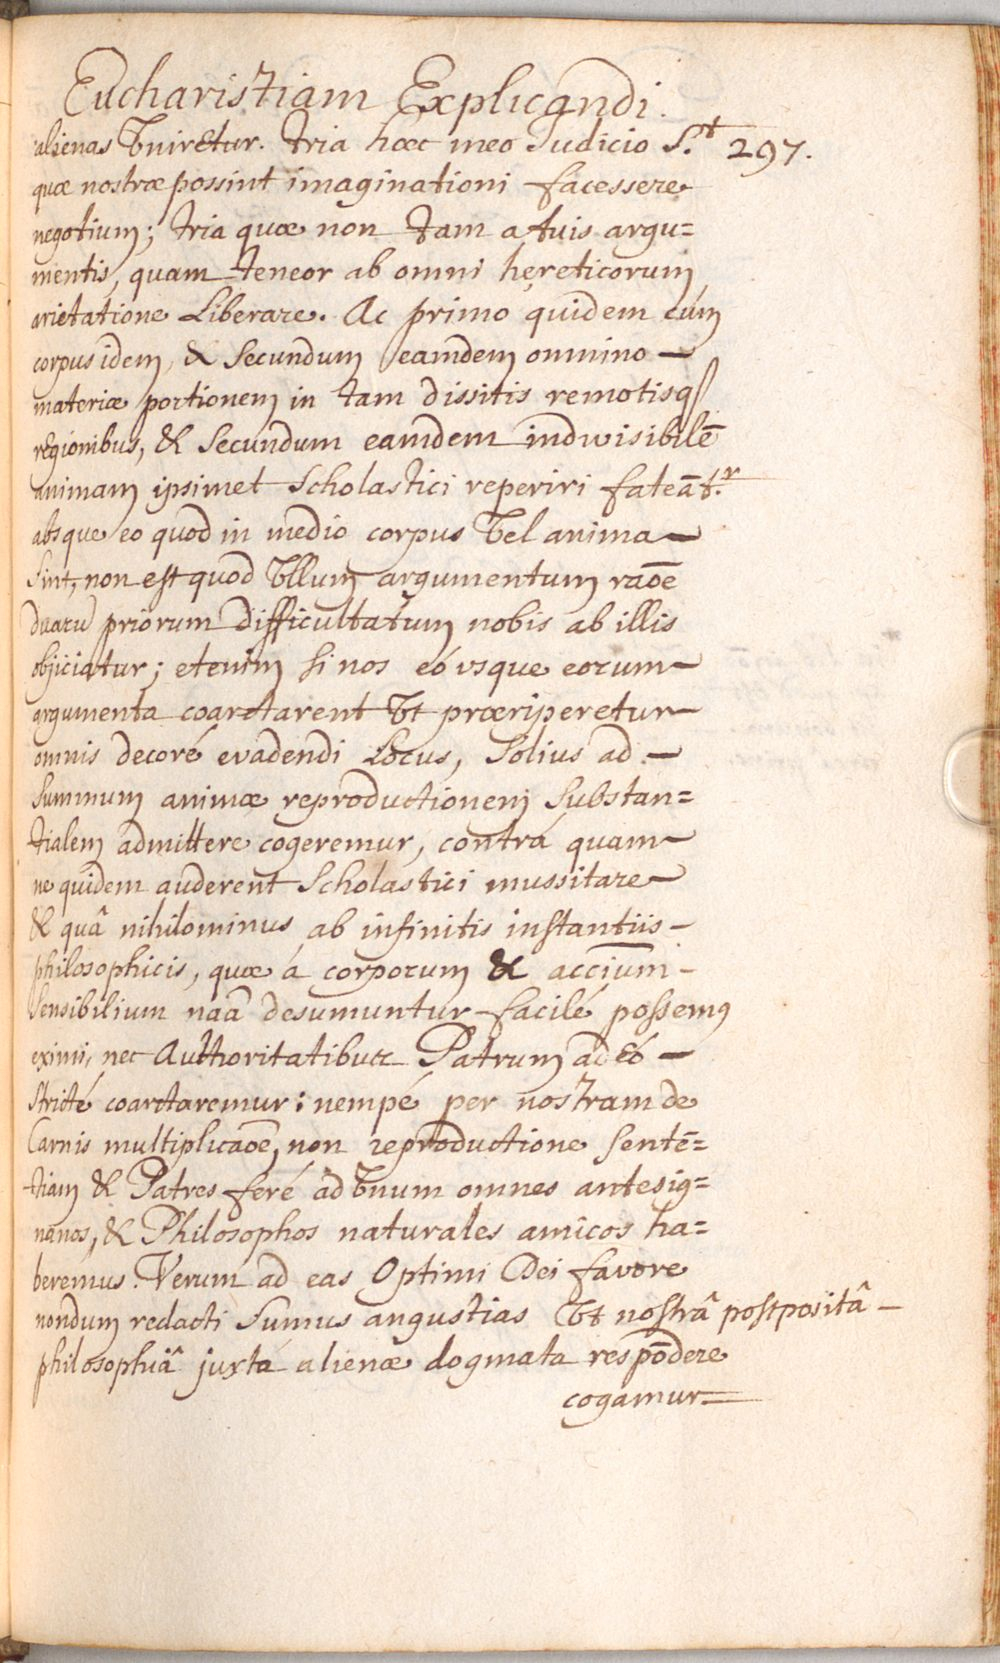 Eucharistiam Explicandi.
alienas Vniretur. tria hæc meo Judicio S.t 297.
quæ nostræ possint imaginationi facessere
negotium; tria quæ non tam a tuis argu=
mentis, quam teneor ab omni hęreticorum
arietatione Liberare. Ac primo quidem cúm
corpus idem, & secundum eamdem omnino —
materiæ portionem in tam dissitis remotisq
regionibus, & secundum eamdem indivisibilē
animam ipsimet Scholastici reperiri fateāt.r
absque eo quod in medio corpus Vel anima —
sint, non est quod Vllum argumentum raōe
duarū priorum difficultatum nobis ab illis
objiciatur; etenim si nos eó vsque eorum —
argumenta coarctarent Vt præriperetur —
omnis decoré evadendi Locus, solius ad —
summum animæ reproductionem substan=
tialem admittere cogeremur, contrá quam —
ne quidem auderent Scholastici mussitare —
& quâ nihilominus ab infinitis instantiis —
philosophicis, quæ á corporum & acciūm —
sensibilium naā desumuntur facilé possemus
eximi, nec Authoritatibus Patrum adeó —
stricté coarctaremur: nempé per nostram de
Carnis multiplicaōe, non reproductione sentē=
tiam & Patres feré ad Vnum omnes antesig=
nanos, & Philosophos naturales amicos ha=
beremus. Verum ad eas Optimi Dei favore
nondum redacti sumus angustias Vt nostrâ postpositâ —
philosophiâ juxtá alienæ dogmata respōdere
cogamur